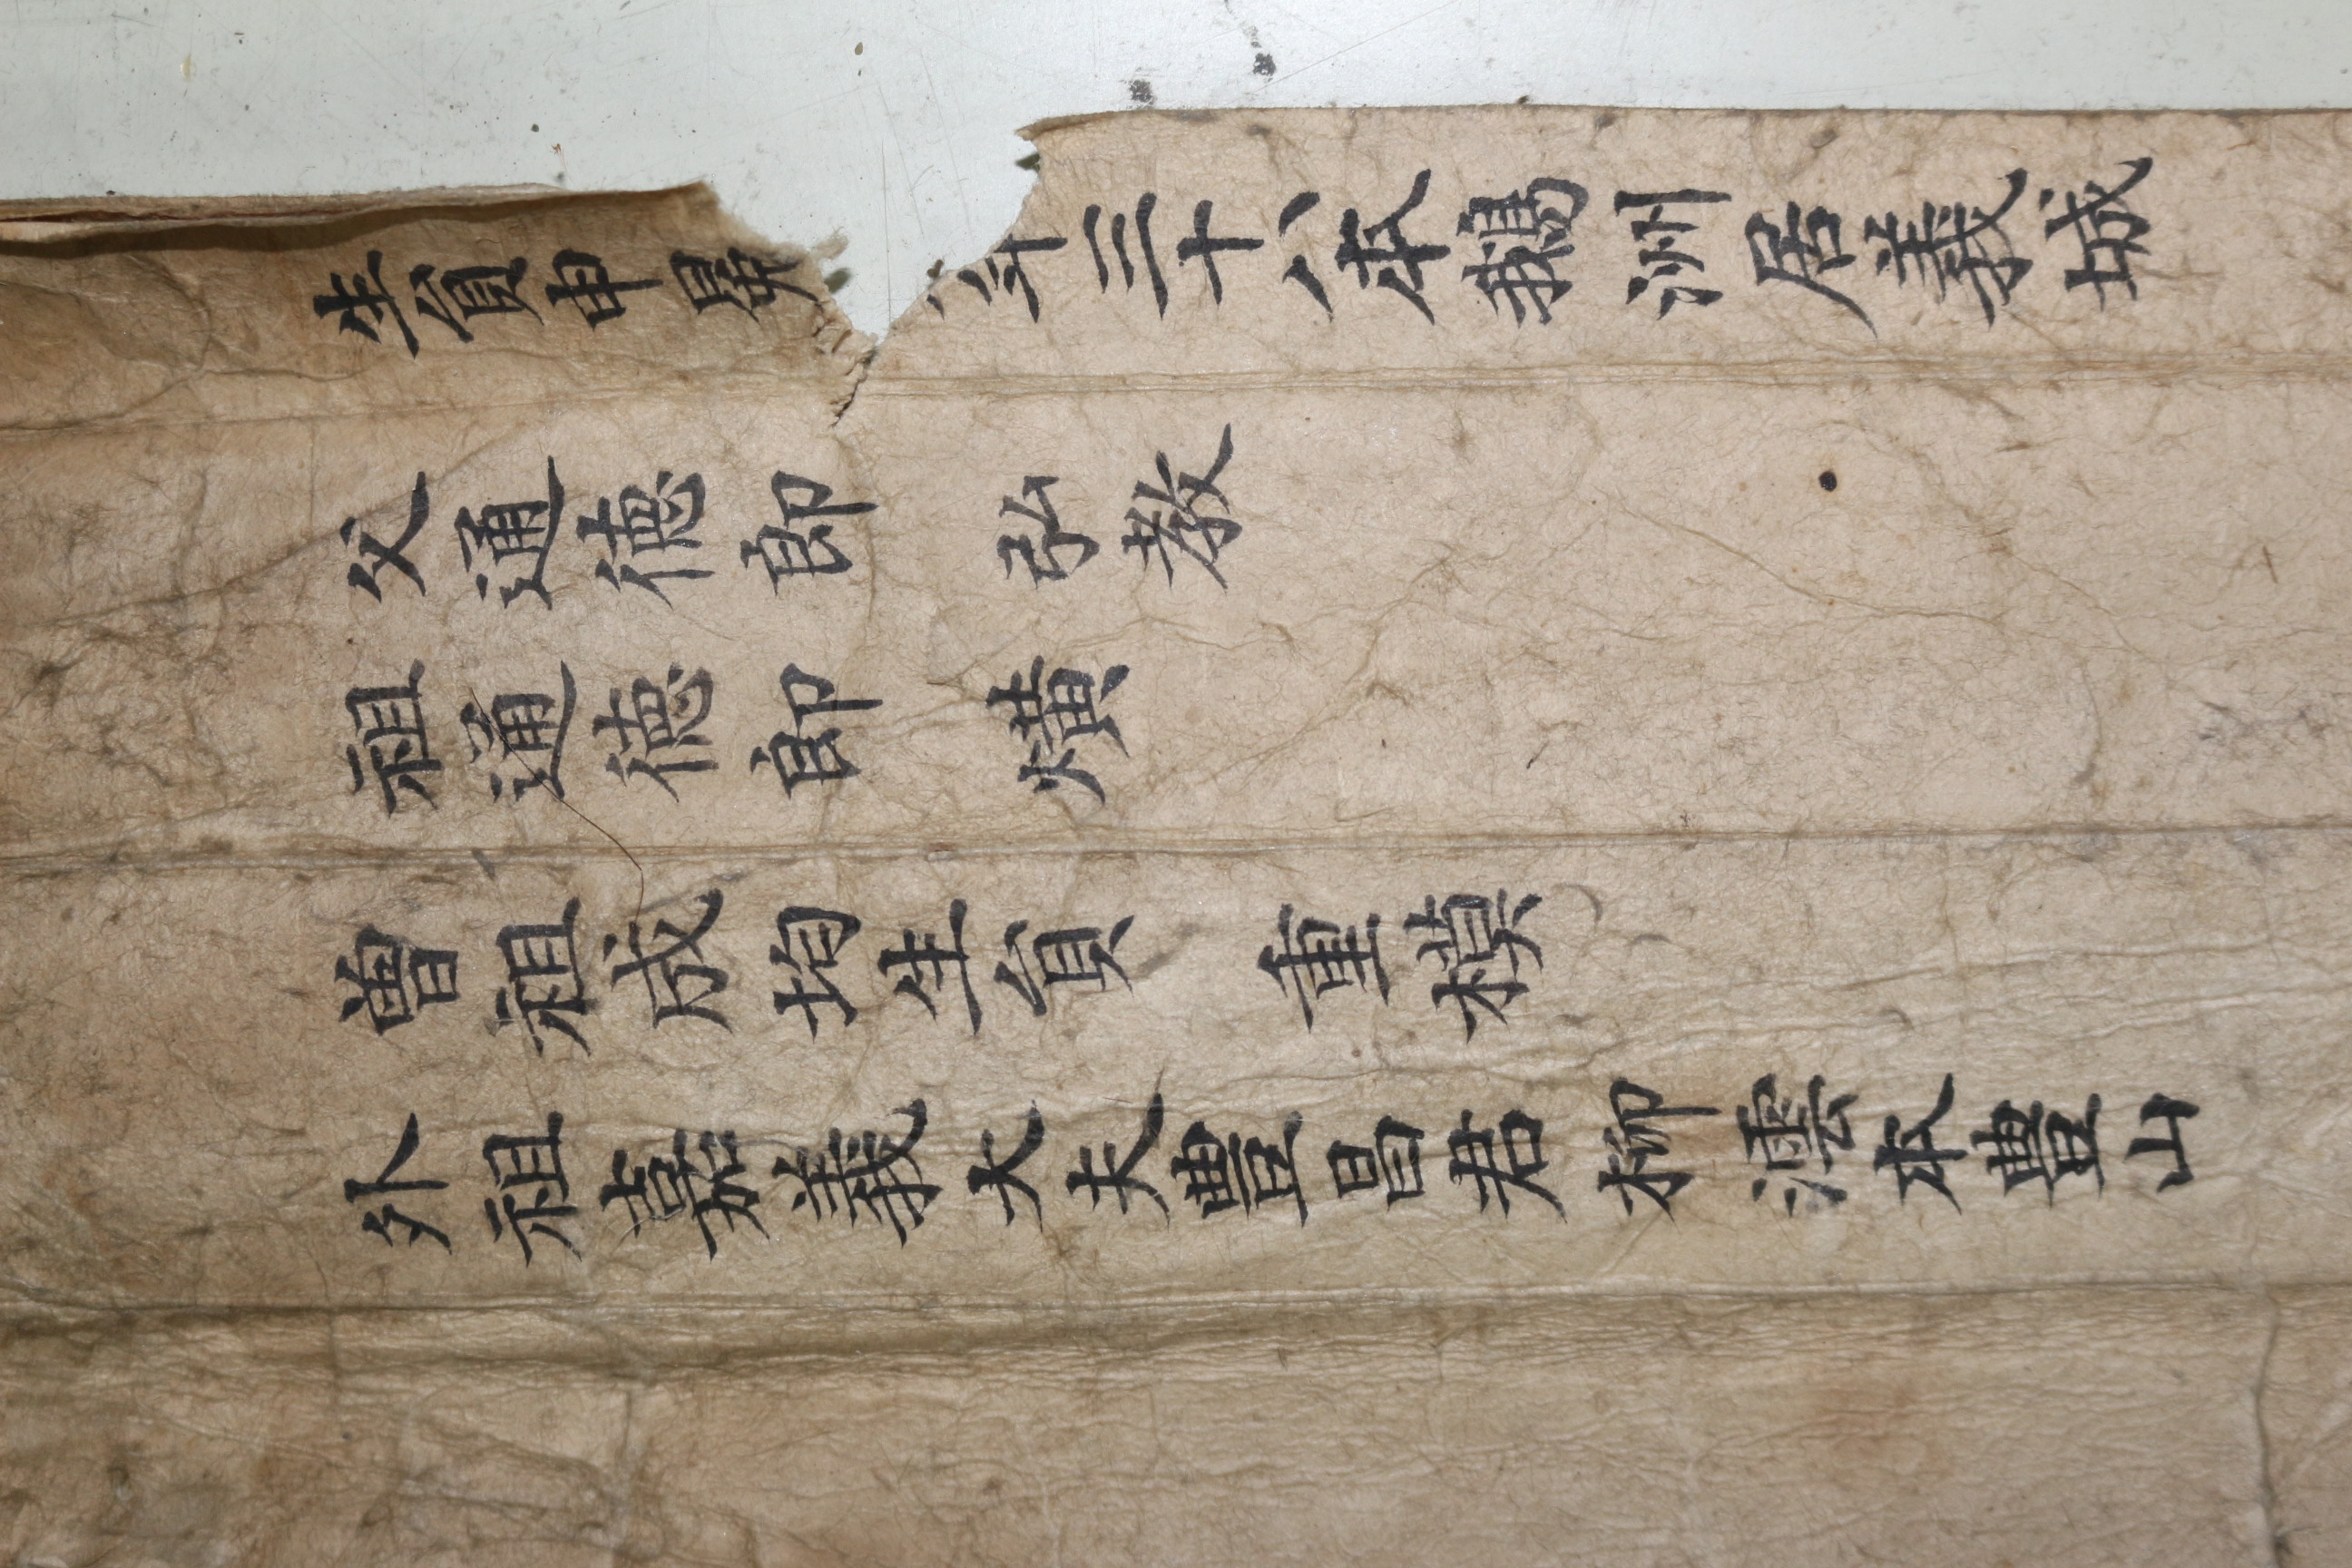 生員申年三十八本鵝洲居義城
父通德郎 弘教
祖通德郎 熿
曾祖成均生員 重模
外祖嘉義大夫豊昌君柳澐本豊山